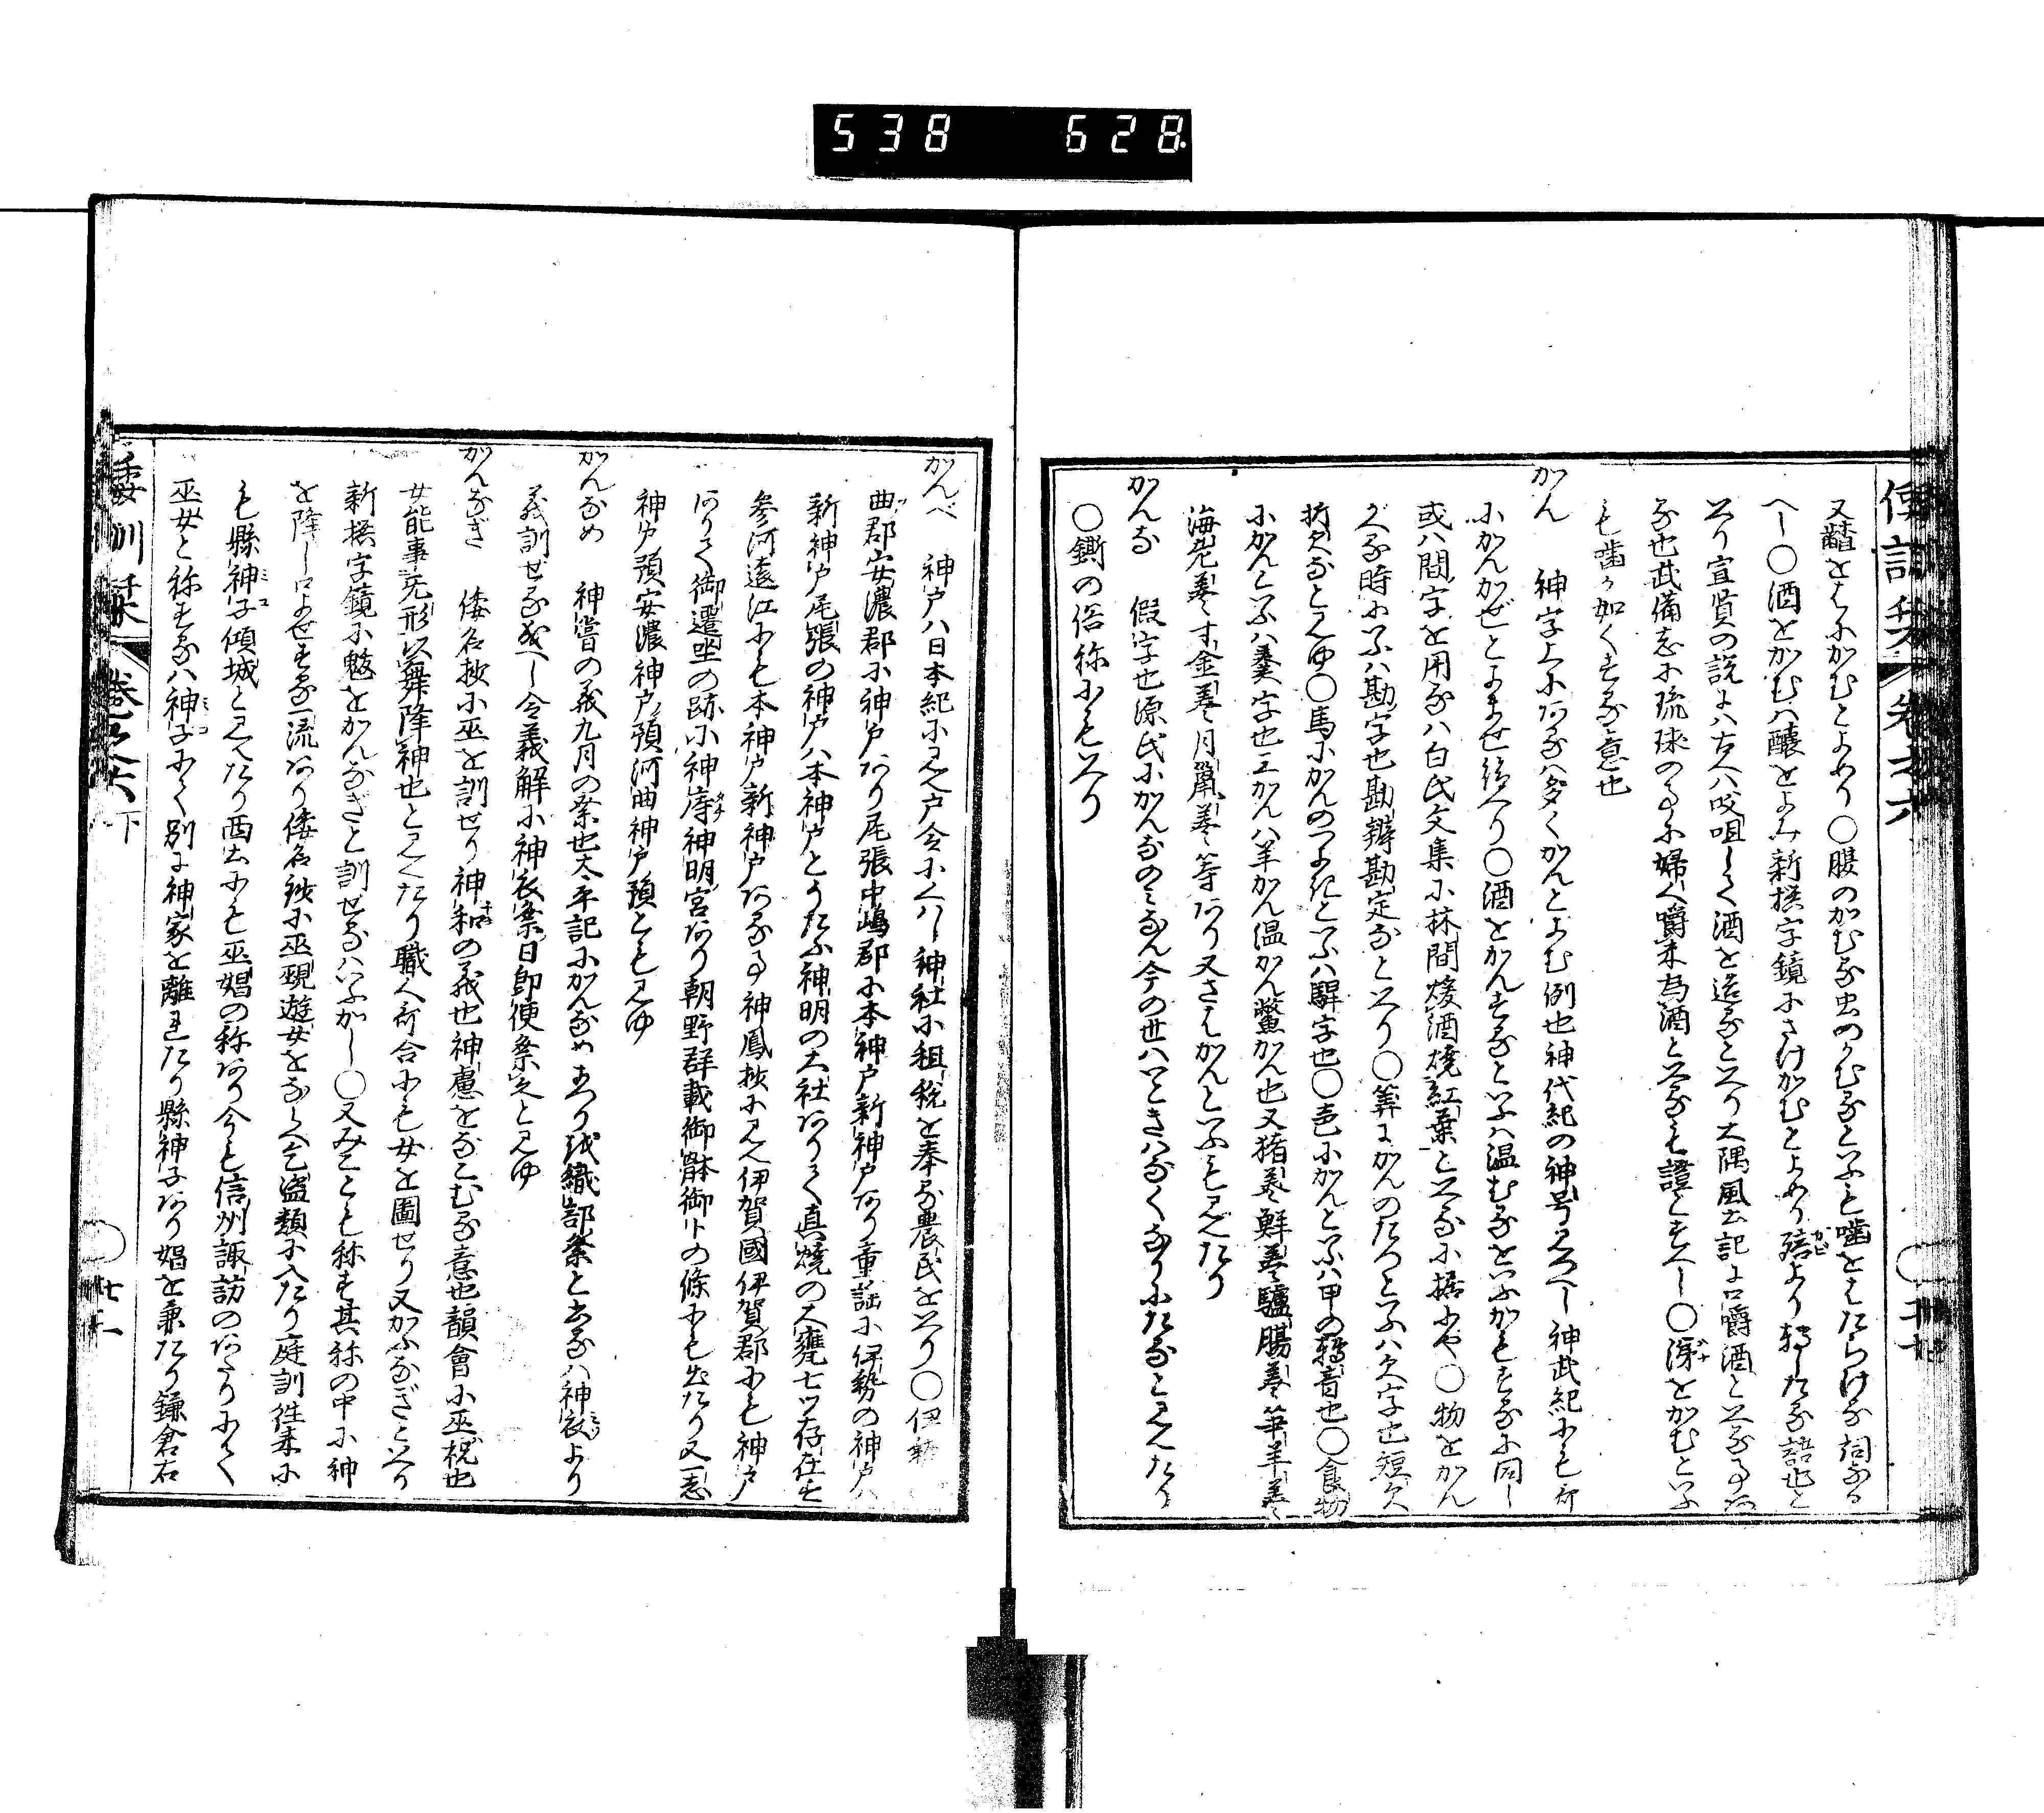 538 628
倭訓栞 卷之六
又齰をもかむとよめり〇腹のかむる虫のかむるといふも噛をはたらける詞なる
へし〇酒をかむハ醸をよみ新撰字鏡にさけかむとよめり醅より転したる語也と
いへり宣賢の説に古人ハ咬咀して酒を造るといへり大隅風土記に口嚼酒といへる事
る也武備志に琉球の事に婦人嚼米為酒といへるも證とすへし〇洟をかむといふ
も歯か如くする意也
かん 神字上にあるハ多くかんとよむ例也神代紀の神号
にかんかぜとよませ給へり〇酒をかんするといふハ温むるをいふかもするに同し
或ハ間字を用るハ白氏文集に林間煖酒燒紅葉といへるに据にや〇物をかん
かへる時にいふハ勘字也勘辨勘定なといへり〇算にかんのたつといふハ欠字也短欠
折欠なと見ゆ〇馬にかんのつよきといふハ駻字也〇色にかんといふハ甲の轉音也〇食物
にかんといふハ羹字也工かんハ羊かん温かん鱉かん也又猪羹鮮羹驢腸羹笋羊羹
海老羹寸金羹月鼠羹等あり又さもかんといふも見えたり
かんな 假字也源氏にかんなのミなん今の世ハいときハなくなりにたると見えたり
〇鐁の俗称にもいへり
かんべ 神戸ハ日本紀に見え戸令にくハし神社に租税を奉る農民をいへり〇伊勢
曲郡安濃郡に神戸あり尾張中嶋郡に本神戸新神戸あり童謡に伊勢の神戸ハ
新神戸尾張の神戸ハ本神戸とうたふ神明の大社ありて真燒の大甕七ツ存在せ
参河遠江にも本神戸新神戸ある事神鳳抄に見え伊賀國伊賀郡にも神戸
ありて御遷坐の跡に神庤神明宮あり朝野群載御躰御卜の條にも出たり又一志
神戸預安濃神戸預河曲神戸預とも見ゆ
かんなめ 神嘗の義九月の祭也太平記にかんなめあつり或織部祭と云るハ神衣より
義訓せる成へし令義解に神衣祭日即便祭之と見ゆ
かんなぎ 倭名抄に巫を訓せり神和の義也神慮をなこむる意也韻會に巫祝也
女能事无形以舞降神也と見えたり職人歌合にも女を圖せり又かふなぎといへり
新撰字鏡に䰧をかんなぎと訓せるハいふかし〇又みことも称す其称の中に神
を降し口よせする一流あり倭名抄に巫覡遊女をならへ乞盗類に入たり庭訓往来に
も縣神子傾城と見えたり西土にも巫娼の称あり今も信州諏訪のあたりにて
巫女と称するハ神子にて別に神家を離れたり縣神子あり娼を兼たり鎌倉右
倭訓栞 卷之六下 廿一